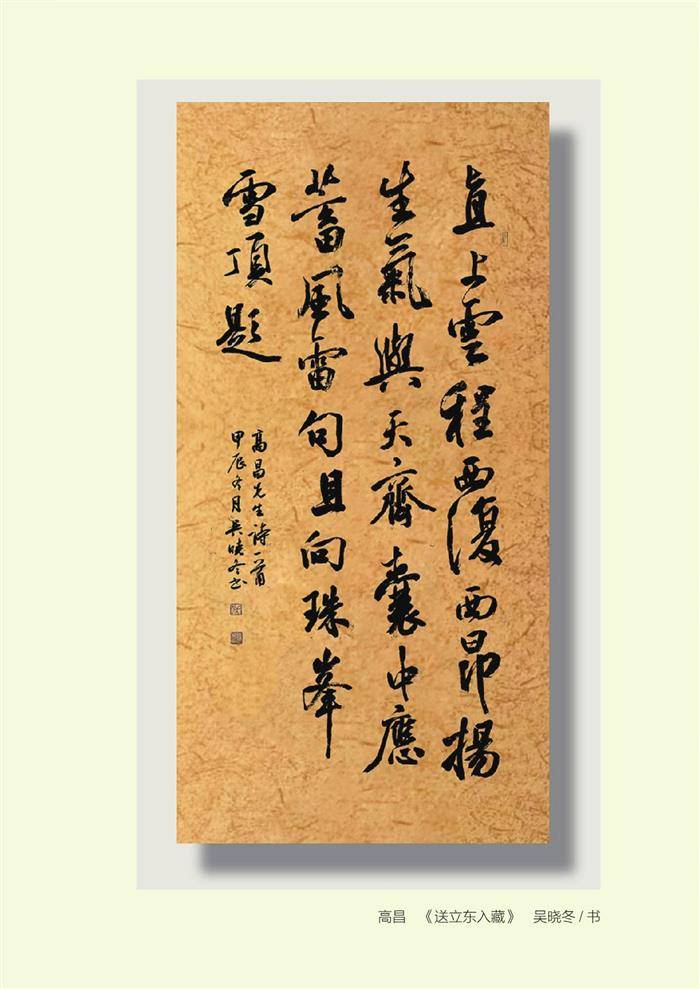 直上雲程西復西昂揚
生氣與天齊囊中應
蓄風雷句且向珠峯
雪頂題
高昌先生詩一首
甲辰冬月吳曉冬書
高昌 《送立东入藏》 吴晓冬/书